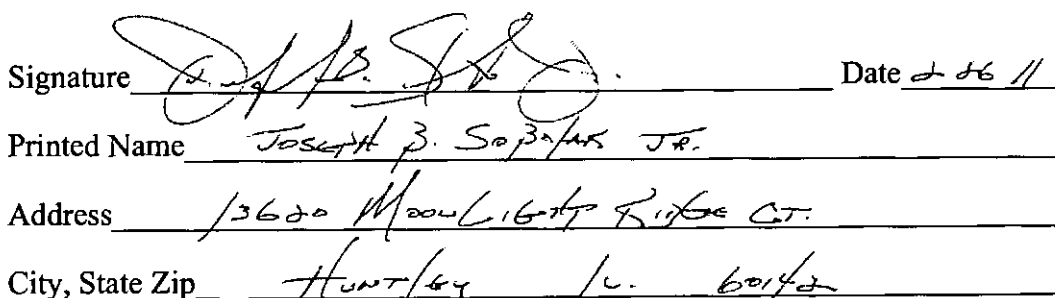 Signature Date 2 26 11
Printed Name JOSEPH B. JR.
Address 13620 MOONLIGHT RIDGE CT.
City, State Zip HUNTLEY IL. 60142